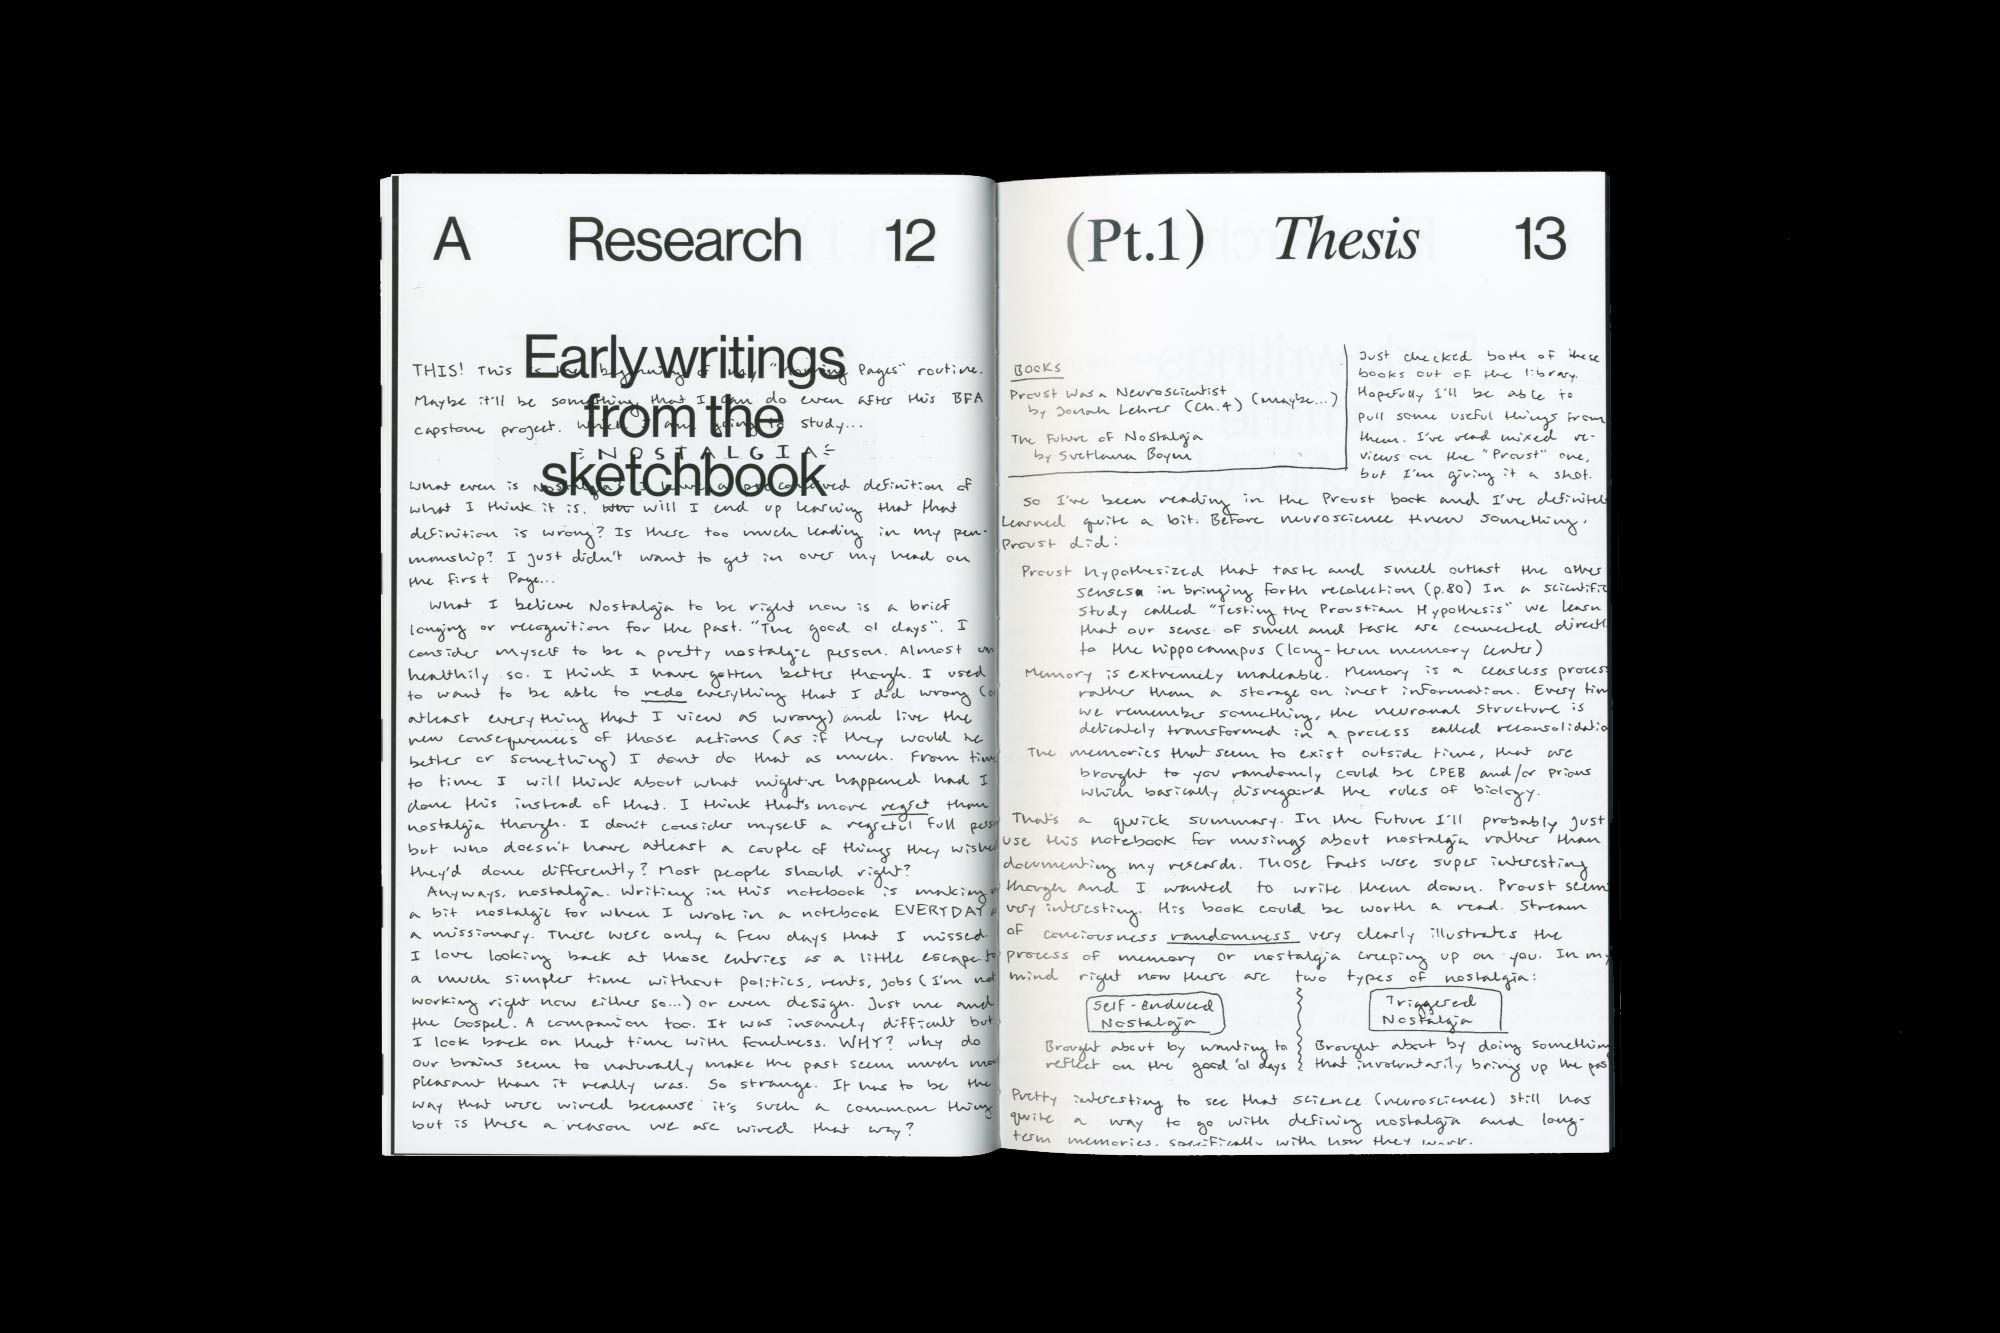 A Research 12
Early writings
from the
sketchbook
THIS! This is the beginning of my "Morning Pages" routine.
Maybe it'll be something that I can do even after this BFA
capstone project. Which I am going to study...
NOSTALGIA
What even is Nostalgia? I have a preconceived definition of
what I think it is. will I end up learning that that
definition is wrong? Is there too much leading in my pen-
manship? I just didn't want to get in over my head on
the first Page...
What I believe Nostalgia to be right now is a brief
longing or recognition for the past. "The good ol days". I
consider myself to be a pretty nostalgic person. Almost un
healthily so. I think I have gotten better though. I used
to want to be able to redo everything that I did wrong (o
atleast everything that I view as wrong) and live the
new consequences of those actions (as if they would be
better or something) I dont do that as much. From tim
to time I will think about what might've happened had I
done this instead of that. I think that's more regret than
nostalgia though. I don't consider myself a regretul full pers
but who doesn't have atleast a couple of things they wish
they'd done differently? Most people should right?
Anyways, nostalgia. Writing in this notebook is making
a bit nostalgic for when I wrote in a notebook EVERYDAY
a missionary. There were only a few days that I missed.
I love looking back at those entries as a little escape to
a much simpler time without politics, rents, jobs (I'm not
working right now either so...) or even design. Just me and
the Gospel. A companion too. It was insanely difficult but
I look back on that time with fondness. WHY? why do
our brains seem to naturally make the past seem much mo
pleasant than it really was. So strange. It has to be the
way that were wired because it's such a common thing
but is there a reason we are wired that way?
(Pt.1) Thesis 13
BOOKS
Proust Was a Neuroscientist
by Jonah Lehrer (Ch.4) (maybe...)
The Future of Nostalgia
by Svetlana Boym
Just checked both of these
books out of the library.
Hopefully I'll be able to
pull some useful things from
them. I've read mixed re-
views on the "Proust" one,
but I'm giving it a shot.
So I've been reading in the Proust book and I've definitel
learned quite a bit. Before neuroscience knew something,
Proust did:
Proust hypothesized that taste and smell outlast the other
senses in bringing forth recolection (p.80) In a scientific
study called "Testing the Proustian Hypothesis" we learn
that our sense of smell and taste are connected directl
to the hippocampus (long-term memory center)
Memory is extremely maleable. Memory is a ceasless proces
rather than a storage on inert information. Every tim
we remember something, the neuronal structure is
delicately transformed in a process called reconsolidatio
The memories that seem to exist outside time, that are
brought to you randomly could be CPEB and/or prions
which basically disregard the rules of biology.
That's a quick summary. In the future I'll probably just
use this notebook for musings about nostalgia rather than
documenting my research. Those facts were super interesting
though and I wanted to write them down. Proust seem
very interesting. His book could be worth a read. Stream
of conciousness randomness very clearly illustrates the
process of memory or nostalgia creeping up on you. In my
mind right now there are two types of nostalgia:
Self-Enduced
Nostalgia
Brought about by wanting to
reflect on the good 'ol days
Triggered
Nostalgia
Brought about by doing somethin
that involuntarily brings up the pas
Pretty interesting to see that science (neuroscience) still has
quite a way to go with defining nostalgia and long-
term memories, specifically with how they work.